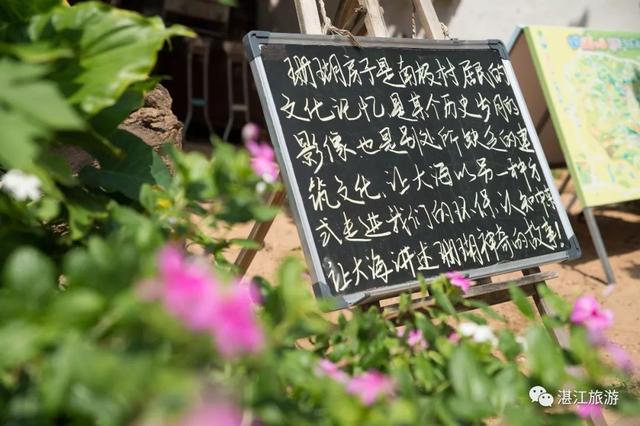 珊瑚房子是南极村居民的
文化记忆，是某个历史岁月的
影像，也是别处所缺乏的建
筑文化，让大海以另一种方
式走进我们的环保、认和
让大海讲述珊瑚神奇的故事！
湛江旅游